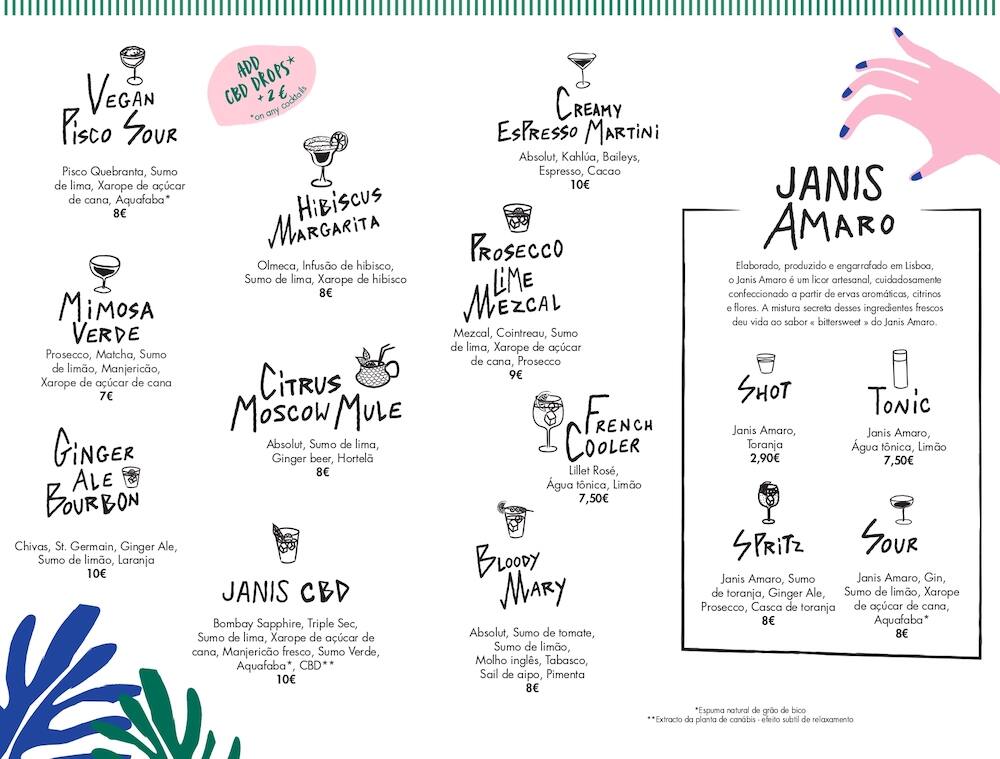 VEGAN
PISCO SOUR
Pisco Quebranta, Sumo
de lima, Xarope de açúcar
de cana, Aquafaba*
8€
ADD
CBD DROPS*
+2€
*on any cocktails
MIMOSA
VERDE
Prosecco, Matcha, Sumo
de limão, Manjericão,
Xarope de açúcar de cana
7€
GINGER
ALE
BOURBON
Chivas, St. Germain, Ginger Ale,
Sumo de limão, Laranja
10€
HIBISCUS
MARGARITA
Olmeca, Infusão de hibisco,
Sumo de lima, Xarope de hibisco
8€
CITRUS
MOSCOW MULE
Absolut, Sumo de lima,
Ginger beer, Hortelã
8€
JANIS CBD
Bombay Sapphire, Triple Sec,
Sumo de lima, Xarope de açúcar de
cana, Manjericão fresco, Sumo Verde,
Aquafaba*, CBD**
10€
CREAMY
ESPRESSO MARTINI
Absolut, Kahlúa, Baileys,
Espresso, Cacao
10€
PROSECCO
LIME
MEZCAL
Mezcal, Cointreau, Sumo
de lima, Xarope de açúcar
de cana, Prosecco
9€
FRENCH
COOLER
Lillet Rosé,
Água tônica, Limão
7,50€
BLOODY
MARY
Absolut, Sumo de tomate,
Sumo de limão,
Molho inglês, Tabasco,
Sail de aipo, Pimenta
8€
JANIS
AMARO
Elaborado, produzido e engarrafado em Lisboa,
o Janis Amaro é um licor artesanal, cuidadosamente
confeccionado a partir de ervas aromáticas, citrinos
e flores. A mistura secreta desses ingredientes frescos
deu vida ao sabor « bittersweet » do Janis Amaro.
SHOT
Janis Amaro,
Toranja
2,90€
TONIC
Janis Amaro,
Água tônica, Limão
7,50€
SPRITZ
Janis Amaro, Sumo
de toranja, Ginger Ale,
Prosecco, Casca de toranja
8€
SOUR
Janis Amaro, Gin,
Sumo de limão, Xarope
de açúcar de cana,
Aquafaba*
8€
*Espuma natural de grão de bico
**Extracto da planta de canábis - efeito subtil de relaxamento